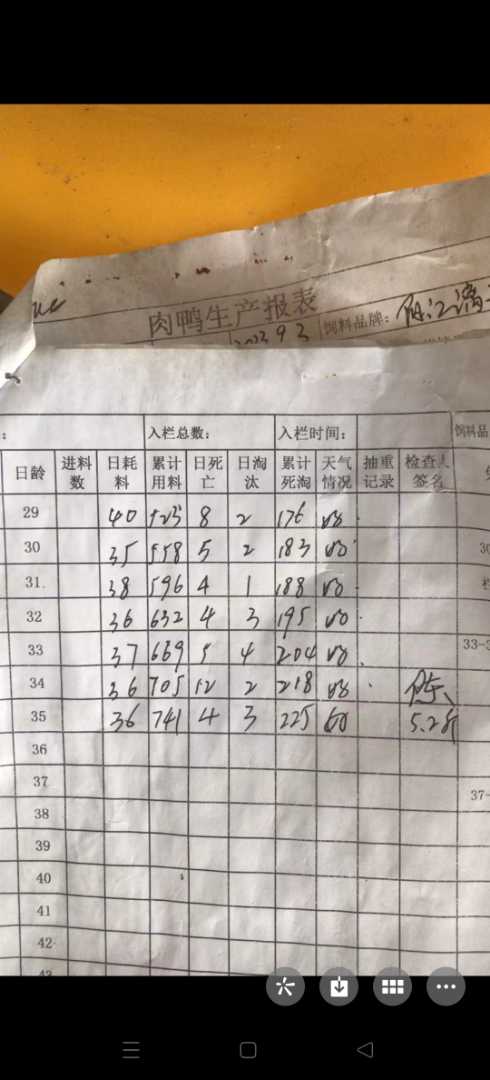 肉鸭生产报表
2023 9 3 饲料品牌: 阳江漓
: 入栏总数: 入栏时间: 饲料品
日龄 进料数 日耗料 累计用料 日死亡 日淘汰 累计死淘 天气情况 抽重记录 检查人签名
29 40 523 8 2 176
30 35 558 5 2 183
31 38 596 4 1 188
32 36 632 4 3 195
33 37 669 5 4 204 33-3
34 36 705 12 2 218
35 36 741 4 3 225 5.2斤
36
37 37-
38
39
40
41
42
43